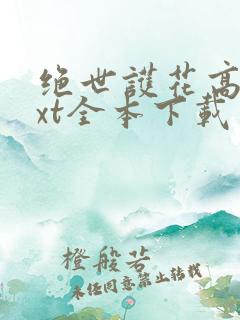 绝世護花高
xt全本下载
橙般若
未经同意禁止转载